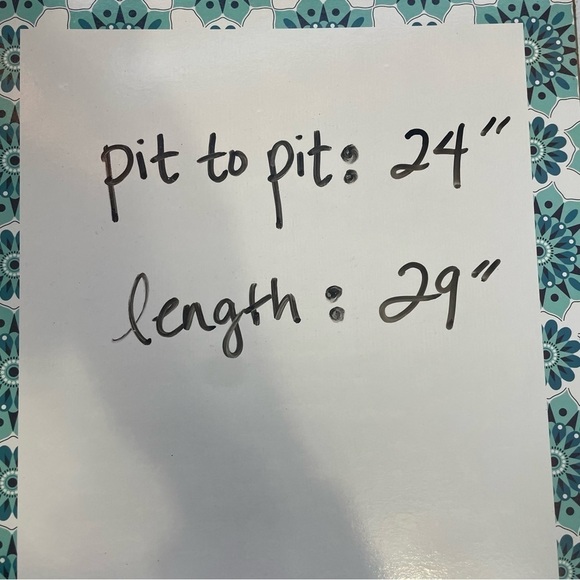 pit to pit: 24"
length: 29"